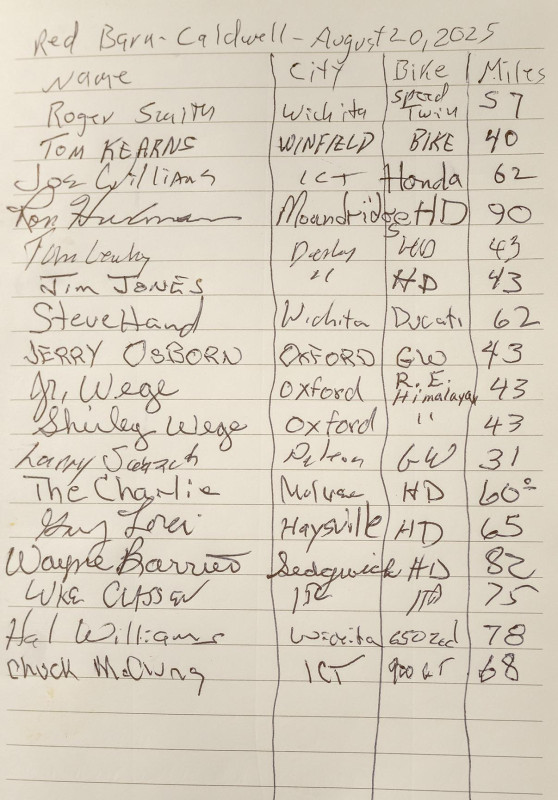 Red Barn - Caldwell - August 20, 2025
Name City Bike Miles
Roger Smith Wichita Speed Twin 57
TOM KEARNS WINFIELD BIKE 40
Joe Williams ICT Honda 62
Ron Moundridge HD 90
Tom Derby HD 43
Jim JONES " HD 43
Steve Hand Wichita Ducati 62
JERRY OSBORN OXFORD GW 43
Jr. Wege Oxford R.E. Himalayan 43
Shirley Wege Oxford " 43
Larry GW 31
The Charlie HD 60
Haysville HD 65
Wayne Barrier Sedgwick HD 82
LUKE CLASSEN 75
Hal Williams Wichita 650 Zed 78
Chuck McClung ICT 900 GT 68